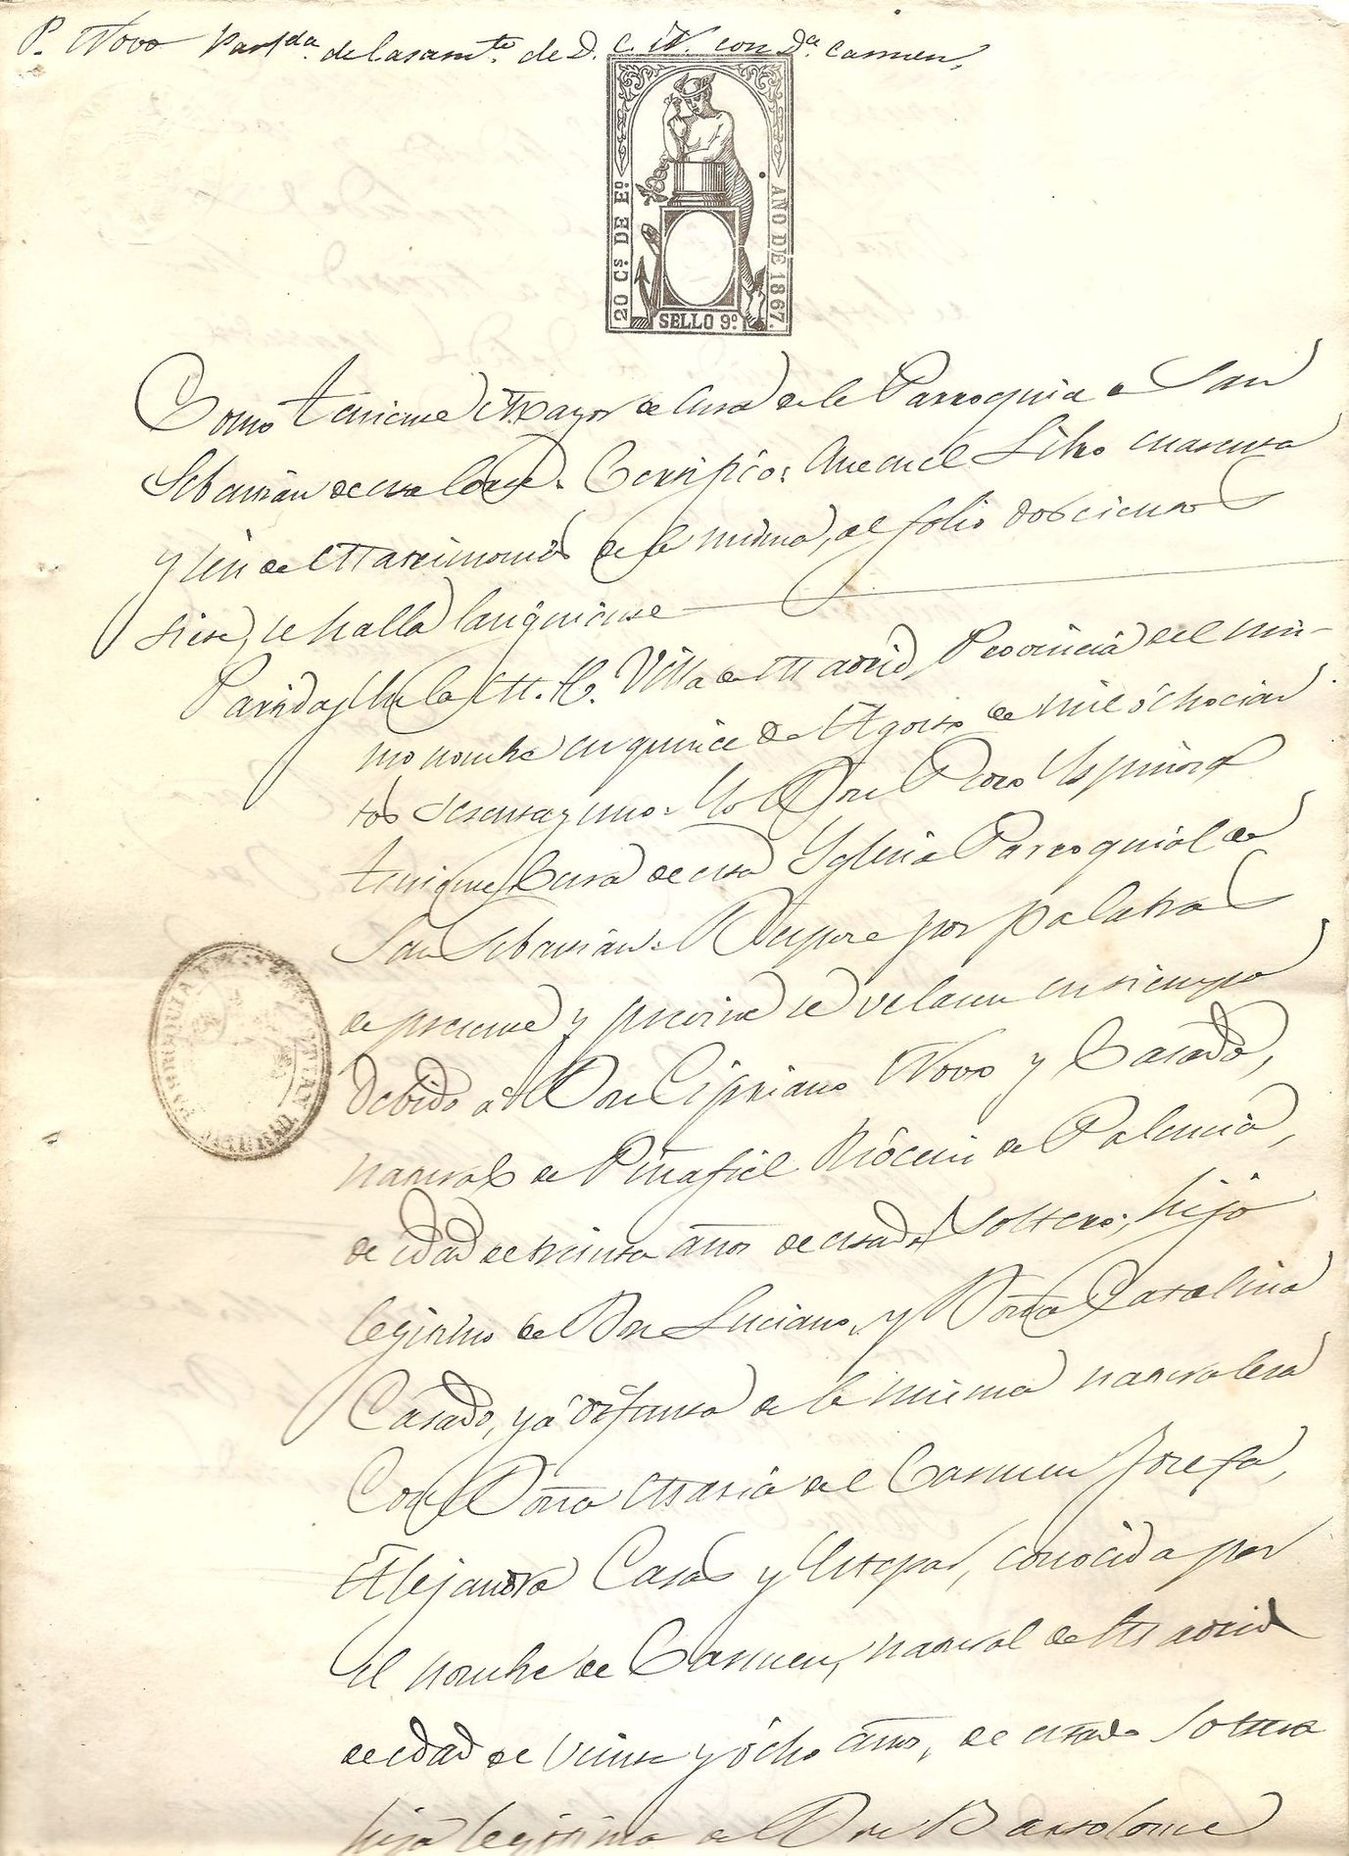 P. Novo Part.da de Casam.to de D. C. N. con D.a Carmen,
20 C.s DE E.o
AÑO DE 1867.
SELLO 9.o
Como Teniente Mayor de Cura de la Parroquia de San
Sebastián de esta Corte. Certifico: Que en el Libro cuarenta
y seis de Matrimonios de la misma, al folio doscientos
siete, se halla la siguiente
Partida En la M. H. Villa de Madrid, Provincia del mis-
mo nombre en quince de Agosto de mil ochocien
tos sesenta y uno. Yo Don Pedro Espinosa
Teniente Cura de esta Yglesia Parroquial de
San Sebastian. Desposé por palabras
de presente y previne se velasen en tiempo
debido a Don Cipriano Novo y Casado,
natural de Peñafiel Diócesis de Palencia,
de edad de treinta años de estado Soltero, hijo
legitimo de Don Luciano, y Doña Catalina
Casado, ya difunta de la misma naturaleza
Con Doña Maria del Carmen Josefa,
Alejandra Casas y conocida por
el nombre de Carmen, natural de Madrid
de edad de veinte y ocho años, de estado Soltera
hija legitima de Don Bartolomé
PARROQUIA DE SAN SEBASTIAN MADRID